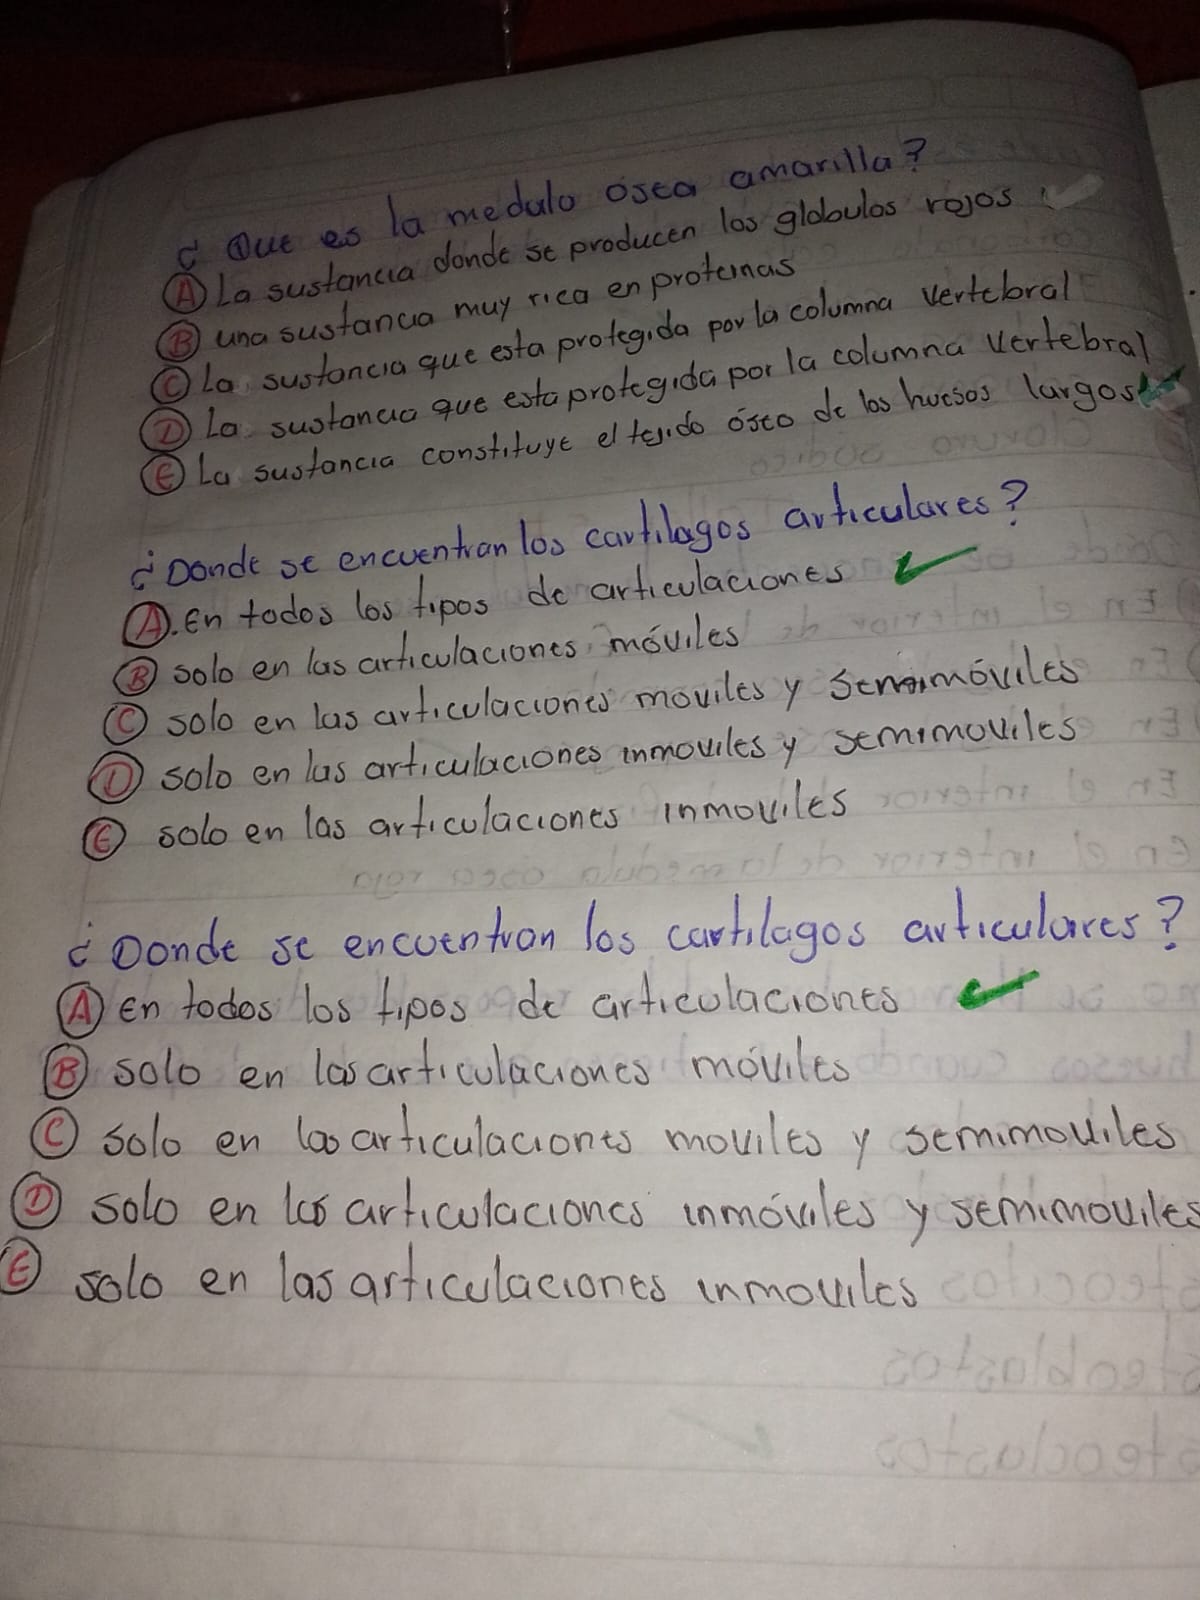 ¿ Que es la medulo osea amarilla?
A La sustancia donde se producen los globulos rojos
B una sustancia muy rica en proteinas
C La sustancia que esta protegida por la columna vertebral
D La sustancia que esta protegida por la columna vertebral
E La sustancia constituye el tejido óseo de los huesos largos
¿ Donde se encuentran los cartilagos articulares?
A. En todos los tipos de articulaciones
B solo en las articulaciones móviles
C solo en las articulaciones moviles y semimóviles
D solo en las articulaciones inmoviles y semimoviles
E solo en las articulaciones inmoviles
¿ Donde se encuentran los cartilagos articulares?
A En todos los tipos de articulaciones
B solo en las articulaciones móviles
C solo en las articulaciones moviles y semimoviles
D solo en las articulaciones inmóviles y semimoviles
E solo en las articulaciones inmoviles